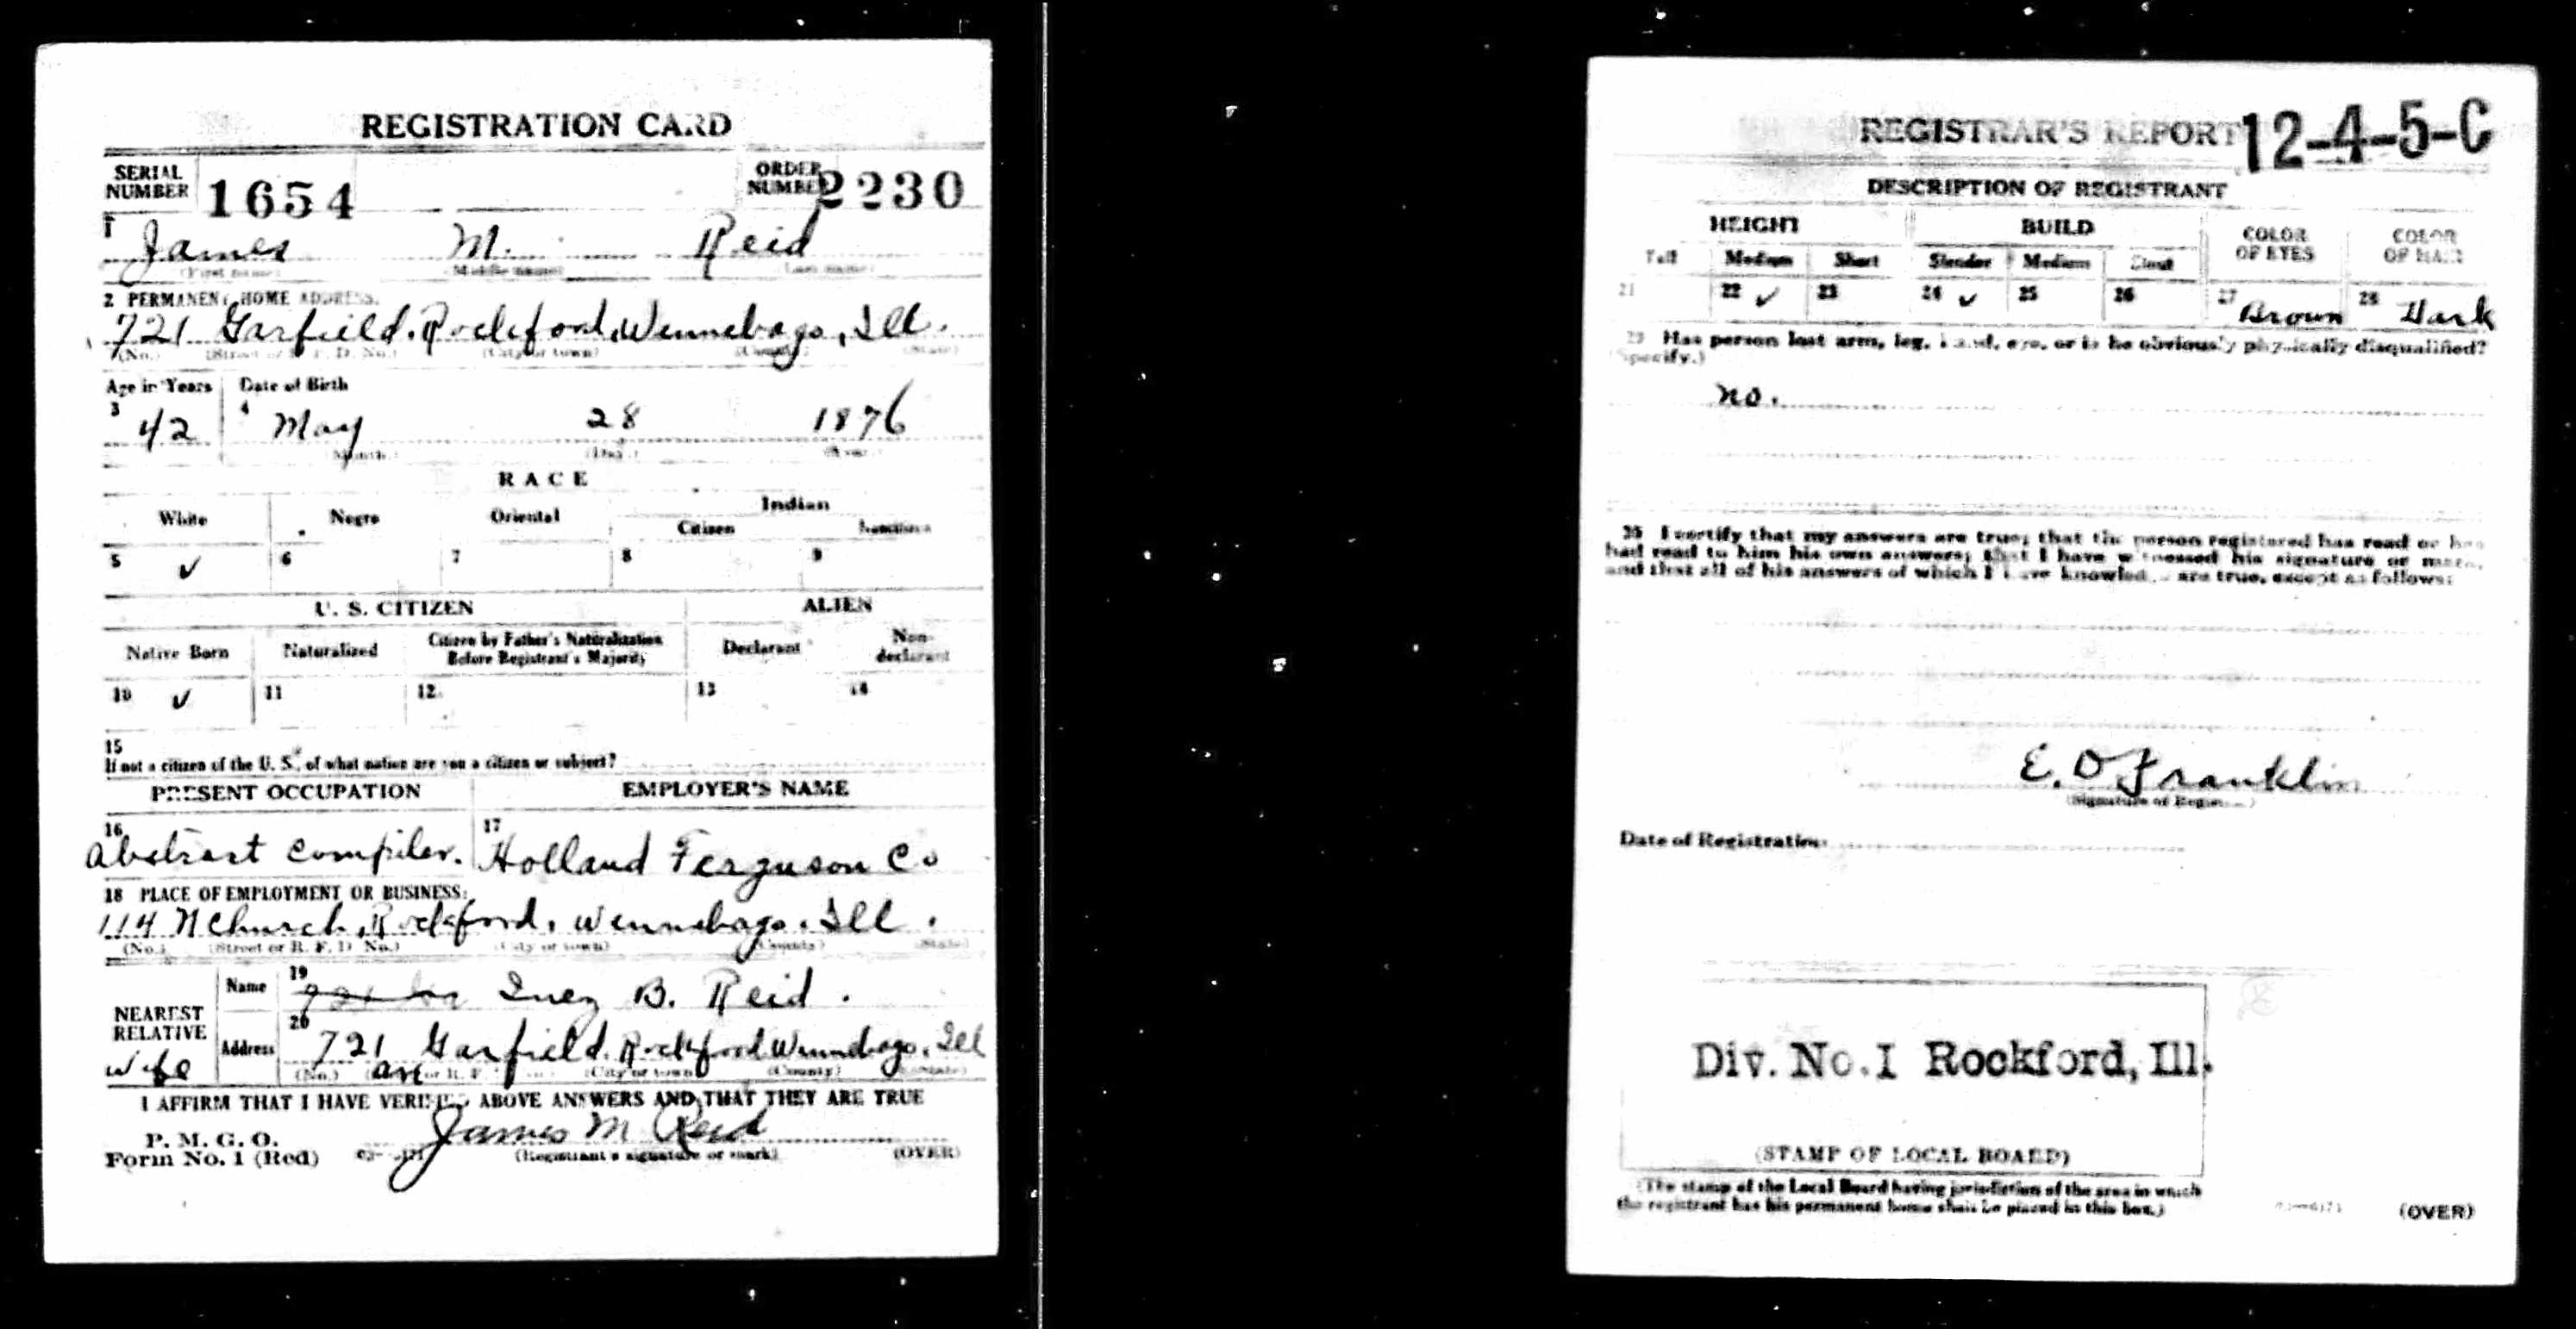 REGISTRATION CARD
SERIAL NUMBER 1654 ORDER NUMBER 2230
1 James M. Reid
(First name) (Middle name) (Last name)
2 PERMANENT HOME ADDRESS.
721 Garfield. Rockford, Wennebago, Ill.
(No.) (Street or R. F. D. No.) (City or town) (County) (State)
Age in Years Date of Birth
3 42 4 May 28 1876
(Month.) (Day.) (Year.)
RACE
White Negro Oriental Indian
Citizen Noncitizen
5 ✓ 6 7 8 9
U. S. CITIZEN ALIEN
Native Born Naturalized Citizen by Father's Naturalization Before Registrant's Majority Declarant Non-declarant
10 ✓ 11 12 13 14
15
If not a citizen of the U. S., of what nation are you a citizen or subject?
PRESENT OCCUPATION EMPLOYER'S NAME
16 Abstract Compiler. 17 Holland Ferguson Co
18 PLACE OF EMPLOYMENT OR BUSINESS:
114 N Church, Rockford, Wennebago. Ill.
(No.) (Street or R. F. D. No.) (City or town) (County) (State)
NEAREST RELATIVE Wife
Name 19 Inez B. Reid.
Address 20 721 Garfield. Rockford Wennebago, Ill
(No.) Ave or R. F. (City or town) (County) (State)
I AFFIRM THAT I HAVE VERIFIED ABOVE ANSWERS AND THAT THEY ARE TRUE
P. M. G. O.
Form No. 1 (Red) James M Reid
(Registrant's signature or mark) (OVER)
REGISTRAR'S REPORT 12-4-5-C
DESCRIPTION OF REGISTRANT
HEIGHT BUILD COLOR OF EYES COLOR OF HAIR
Tall Medium Short Slender Medium Stout
21 22 ✓ 23 24 ✓ 25 26 27 Brown 28 Dark
29 Has person lost arm, leg, hand, eye, or is he obviously physically disqualified?
(Specify.)
no.
30 I certify that my answers are true; that the person registered has read or has
had read to him his own answers; that I have witnessed his signature or mark,
and that all of his answers of which I have knowledge are true, except as follows:
E. D Franklin
(Signature of Registrar)
Date of Registration
Div. No. 1 Rockford, Ill.
(STAMP OF LOCAL BOARD)
(The stamp of the Local Board having jurisdiction of the area in which
the registrant has his permanent home shall be placed in this box.)
(OVER)